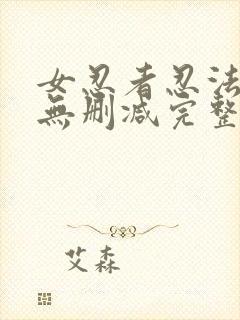 女忍者忍法
無刪减完整
艾森